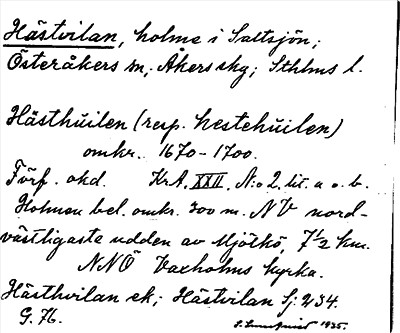 Hästvilan, holme i Saltsjön;
Österåkers sn; Åkers skg; Sthlms l.
Hästhúilen (resp. hestehúilen)
omkr. 1670-1700.
Förf. okd. KrA. XXII. N:o 2. lit. a o. b.
Holmen bel. omkr. 300 m. NV nord-
västligaste udden av Mjölkö, 7½ km.
NNÖ Vaxholms kyrka.
Hästhvilan ek; Hästvilan Sj. 234.
G. 76.
1935.